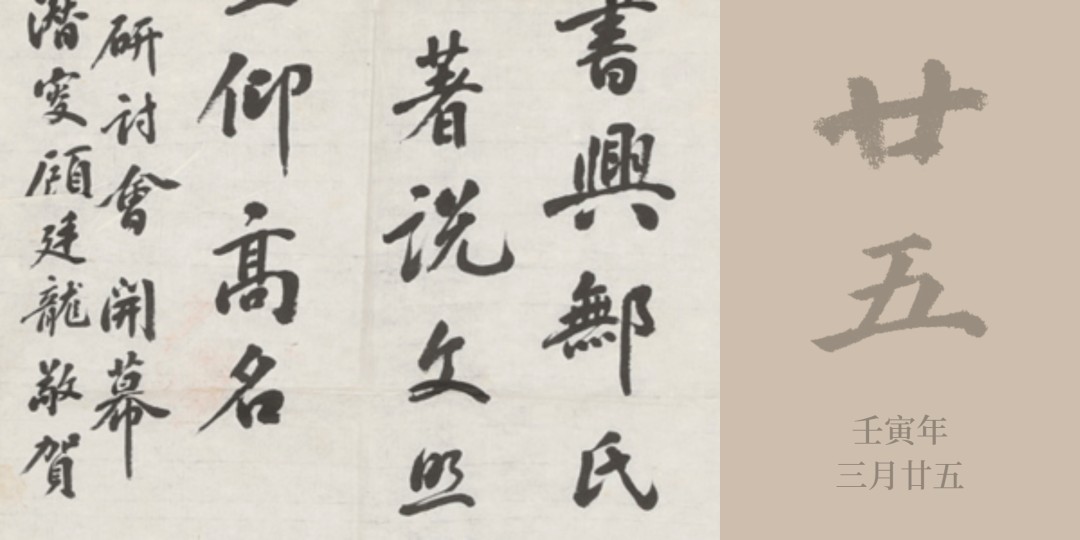 書興鄦氏
著説文照
仰高名
研討會開幕
潛叟顧廷龍敬賀
廿五
壬寅年
三月廿五